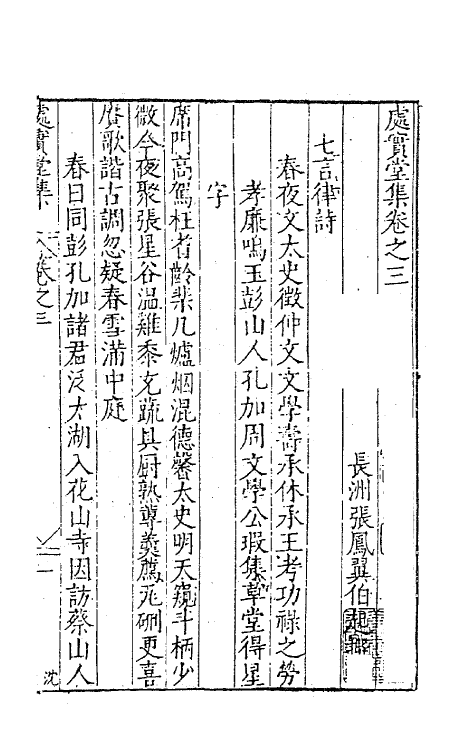 處實堂集卷之三
長洲張鳳翼伯起
七言律詩
春夜文太史徵仲文文學壽承休承王考功祿之勞
孝廉鳴玉彭山人孔加周文學公瑕集草堂得星
字
席門高駕枉耆齡棐几爐烟混德馨太史明天窺斗柄少
微今夜聚張星谷温雞黍充蔬具厨熟蓴羹薦飛硎更喜
賡歌諧古調忽疑春雪滿中庭
春日同彭孔加諸君泛太湖入花山寺因訪蔡山人
處實堂集 卷之三
沈